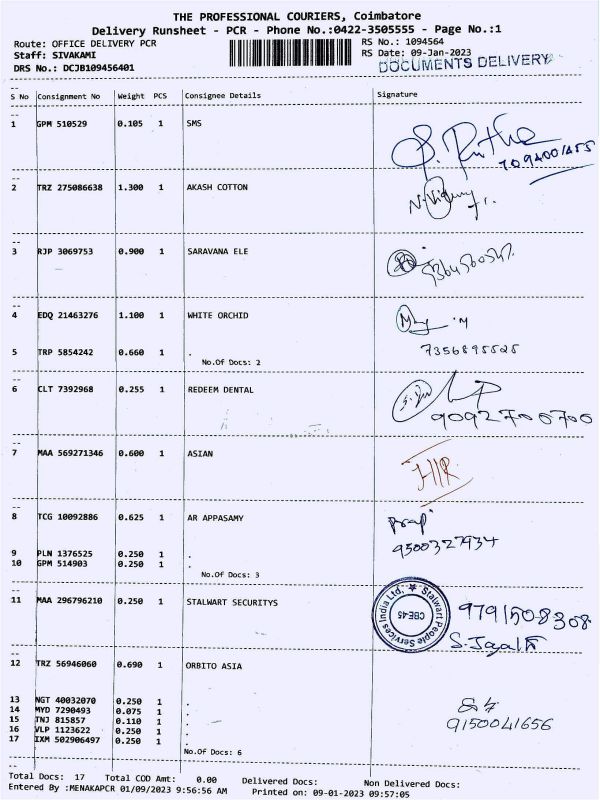 THE PROFESSIONAL COURIERS, Coimbatore
Delivery Runsheet - PCR - Phone No.:0422-3505555 - Page No.:1
Route: OFFICE DELIVERY PCR
RS No.: 1094564
Staff: SIVAKAMI
RS Date: 09-Jan-2023
DRS No.: DCJB109456401
DOCUMENTS DELIVERY
S No Consignment No Weight PCS Consignee Details Signature
1 GPM 510529 0.105 1 SMS
2 TRZ 275086638 1.300 1 AKASH COTTON
3 RJP 3069753 0.900 1 SARAVANA ELE
4 EDQ 21463276 1.100 1 WHITE ORCHID
5 TRP 5854242 0.660 1 .
7356895525
No.Of Docs: 2
6 CLT 7392968 0.255 1 REDEEM DENTAL
9092700700
7 MAA 569271346 0.600 1 ASIAN
8 TCG 10092886 0.625 1 AR APPASAMY
9500327934
9 PLN 1376525 0.250 1 .
10 GPM 514903 0.250 1 .
No.Of Docs: 3
11 MAA 296796210 0.250 1 STALWART SECURITYS
Stalwart People Services India Ltd.
CBE-45
9791508308
12 TRZ 56946060 0.690 1 ORBITO ASIA
13 NGT 40032070 0.250 1 .
14 MYD 7290493 0.075 1 .
15 TNJ 815857 0.110 1 .
16 VLP 1123622 0.250 1 .
17 IXM 502906497 0.250 1 .
9150041656
No.Of Docs: 6
Total Docs: 17 Total COD Amt: 0.00 Delivered Docs: Non Delivered Docs:
Entered By :MENAKAPCR 01/09/2023 9:56:56 AM Printed on: 09-01-2023 09:57:05